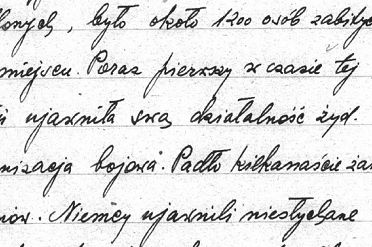 lonych, było około 1200 osób zabityc
miejscu. Poraz pierwszy w czasie tej
ujawniła swą działalność żyd.
nizacja bojowa. Padło kilkanaście żan
mów. Niemcy ujawnili niesłychane